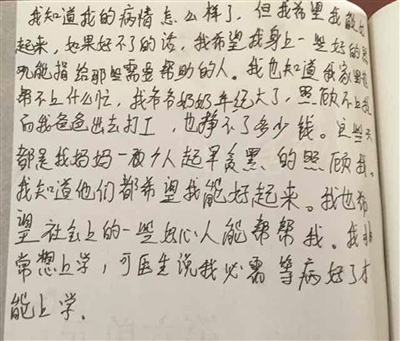 我知道我的病情怎么样了,但我希望我能好
起来,如果好不了的话,我希望我身上一些好的器
官能捐给那些需要帮助的人。我也知道我家里也
帮不上什么忙,我爷爷奶奶年纪大了,照顾不上我
而我爸爸出去打工,也挣不了多少钱。这些天
都是我妈妈一个人起早贪黑的照顾我。
我知道他们都希望我能好起来。我也希
望社会上的一些好心人能帮帮我。我非
常想上学,可医生说我必需等病好了才
能上学.